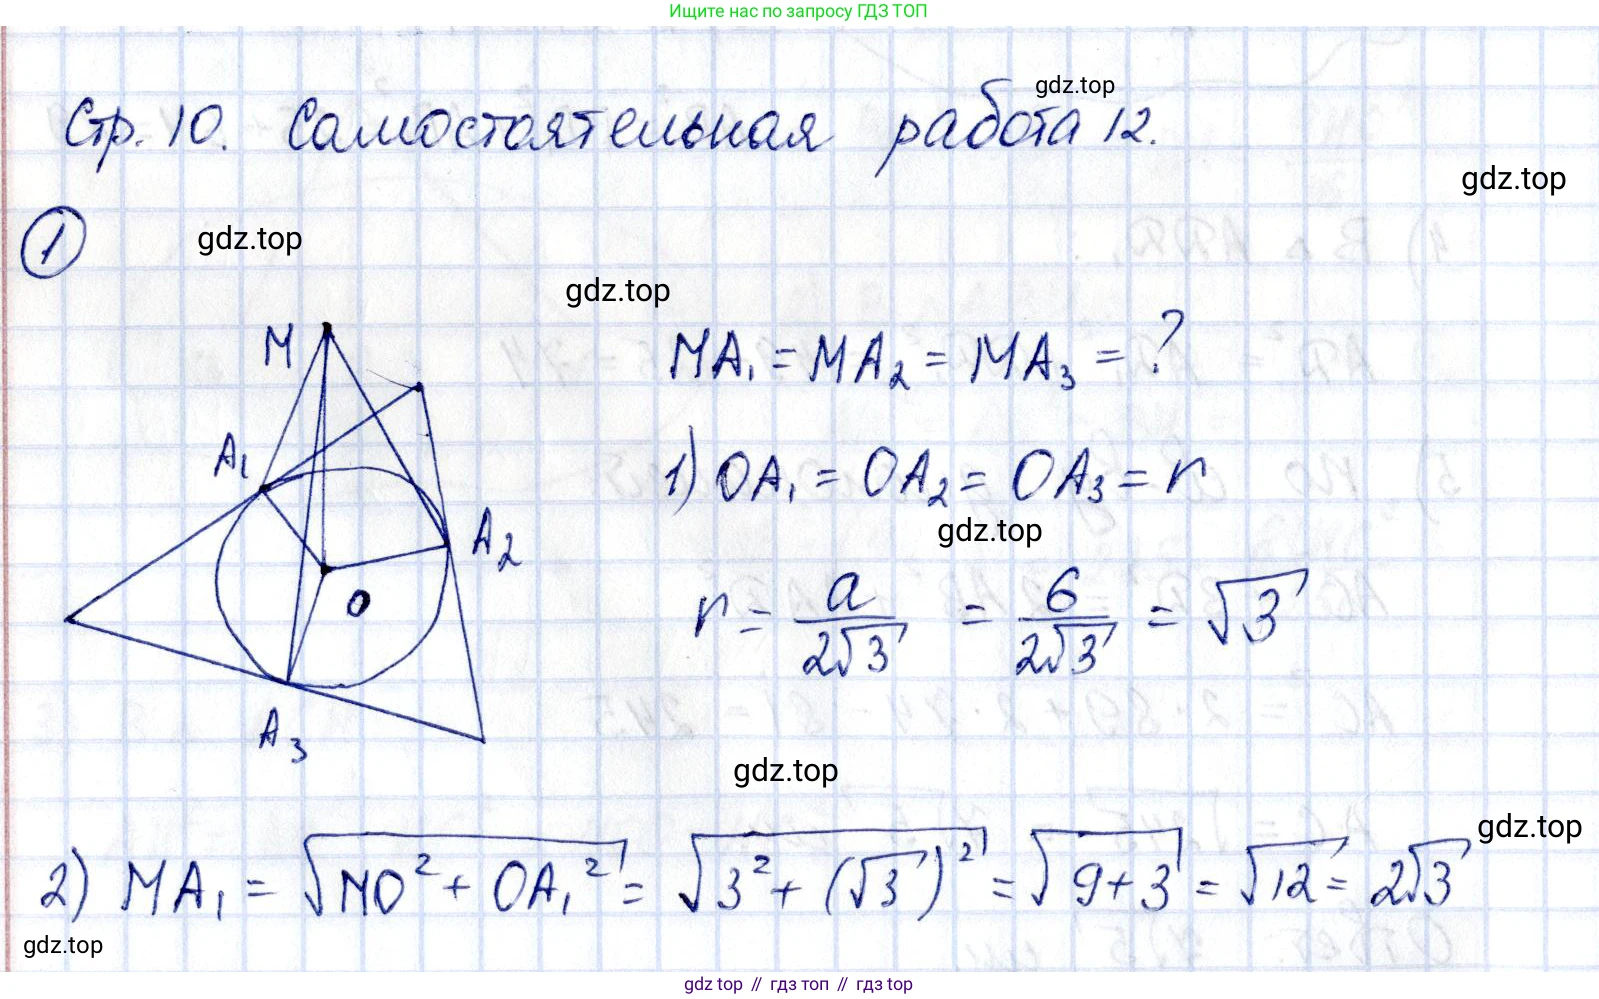 Ищите нас по запросу ГДЗ ТОП
gdz.top
Стр. 10. Самостоятельная работа 12.
gdz.top
1
gdz.top
gdz.top
M
MA₁ = MA₂ = MA₃ = ?
A₁
1) OA₁ = OA₂ = OA₃ = r
gdz.top
A₂
O
r = a/2√3 = 6/2√3 = √3
A₃
gdz.top
gdz.top
2) MA₁ = √MO² + OA₁² = √3² + (√3)² = √9+3 = √12 = 2√3
gdz.top
gdz top // гдз топ // гдз top